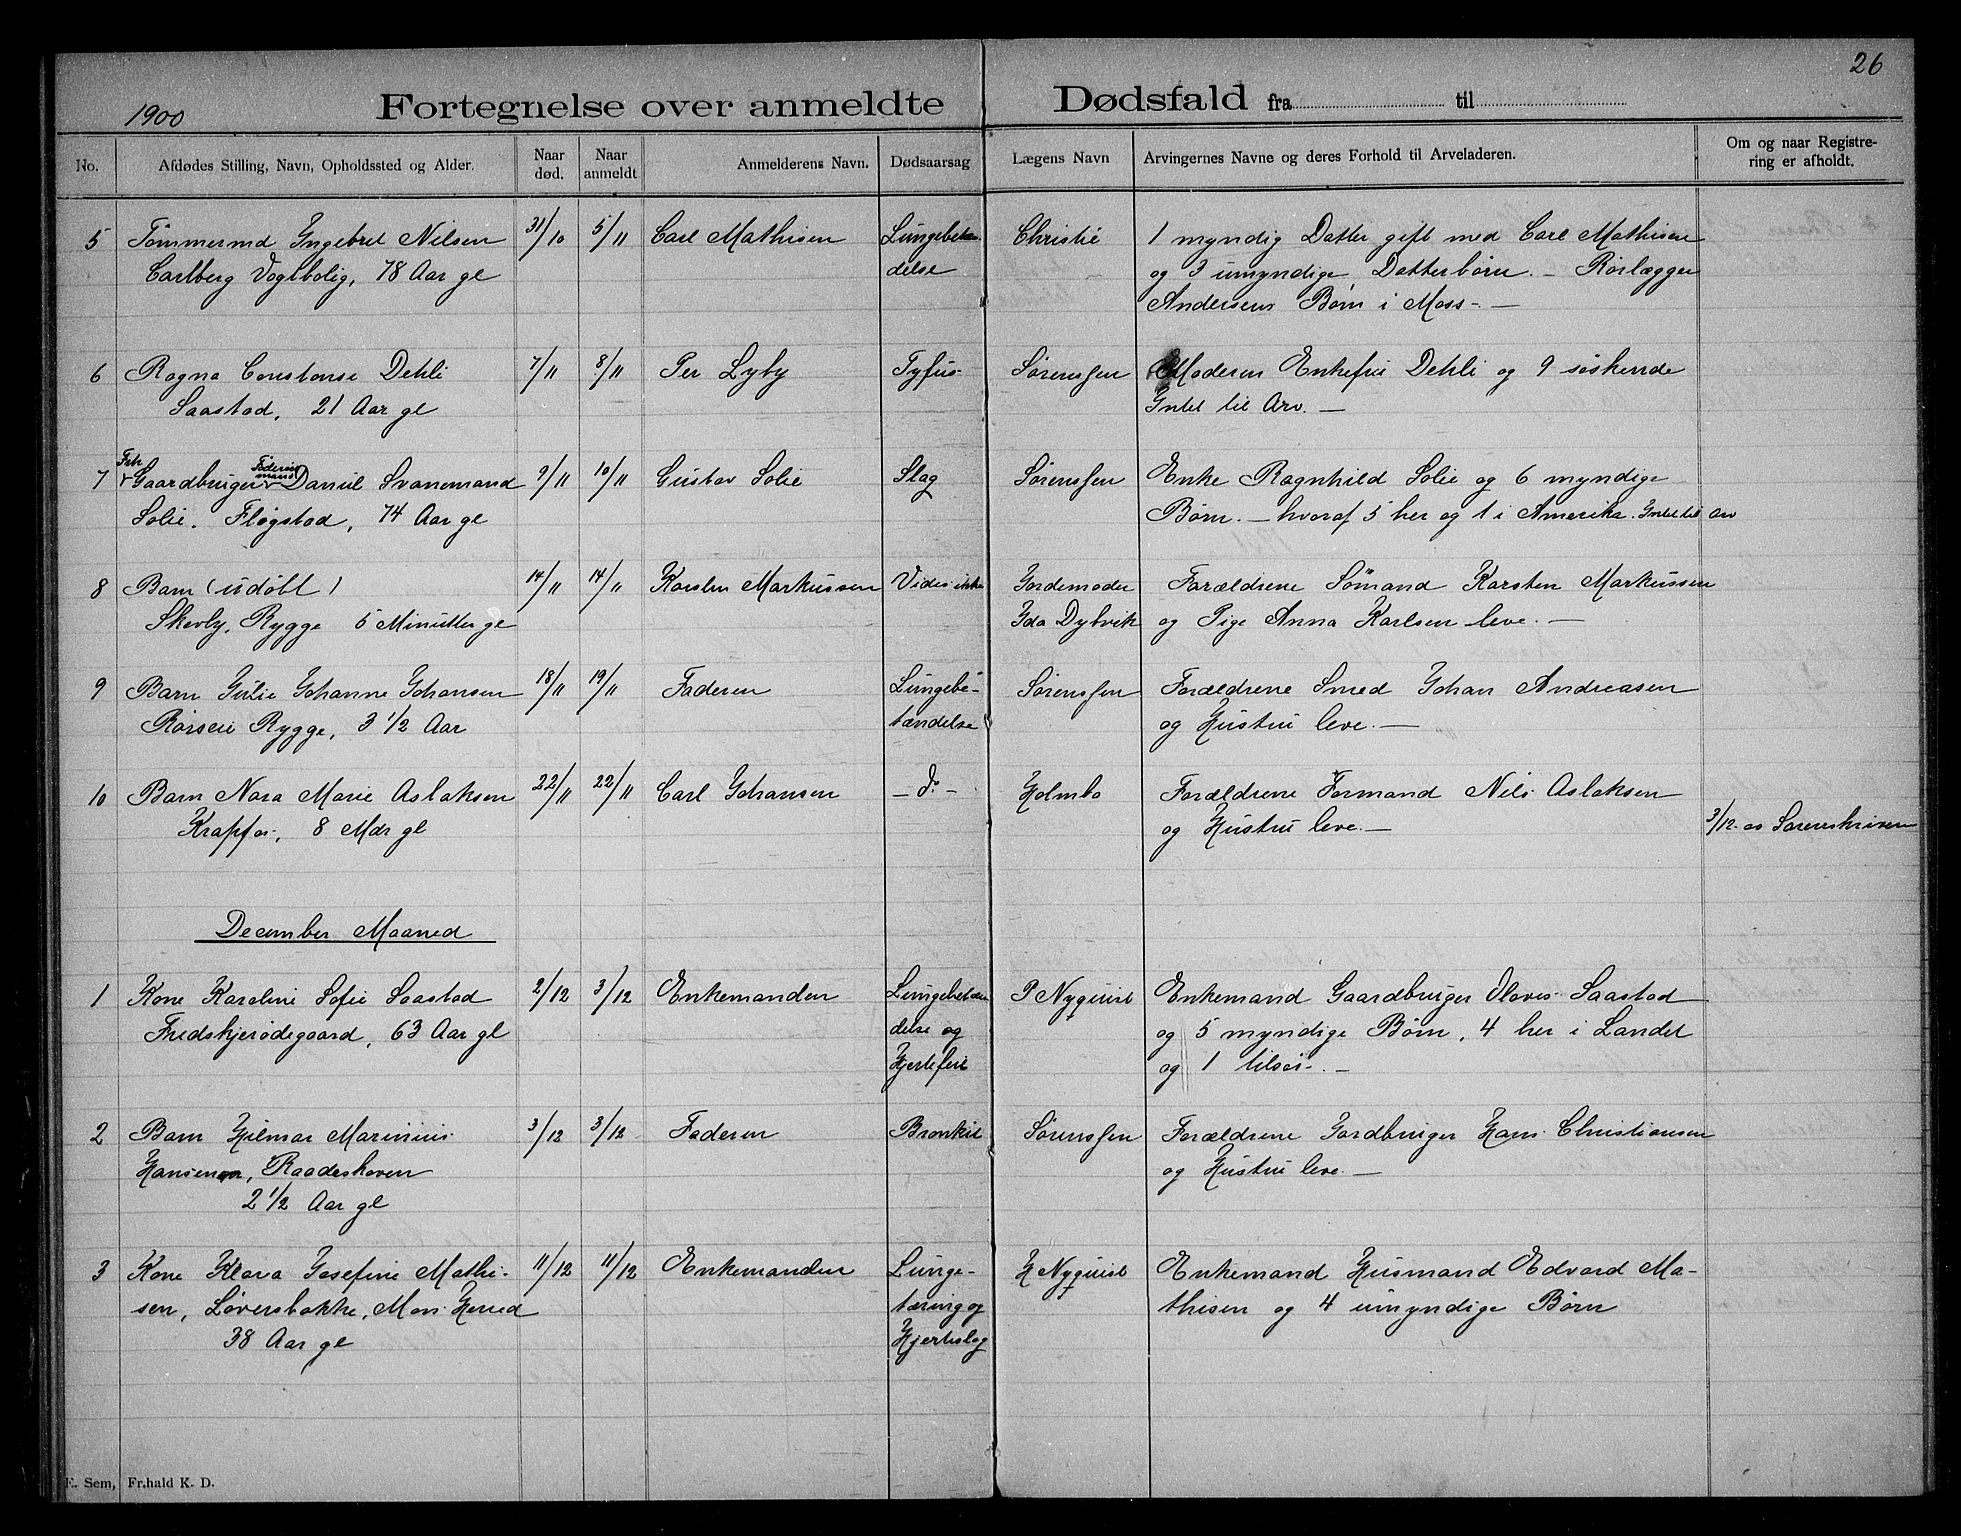 26
1900 Fortegnelse over anmeldte Dødsfald fra til
No. Afdødes Stilling, Navn, Opholdssted og Alder. Naar død. Naar anmeldt Anmelderens Navn. Dødsaarsag Lægens Navn Arvingernes Navne og deres Forhold til Arveladeren. Om og naar Registrering er afholdt.
5 Tømmermd Ingebret Nilsen 31/10 5/11 Carl Mathisen Lungebetæn Christie 1 myndig Datter gift med Carl Mathisen
Carlberg Vogtbolig, 78 Aar gl delse og 3 umyndige Datterbørn. — Rørlægger
Andersens Børn i Moss. —
6 Ragna Constanse Dehli 7/11 8/11 Per Lyby Tyfus Sørenssen Moderen Enkefru Dehli og 9 søskende
Saastad, 21 Aar gl Intet til Arv. —
7 Frh Gaardbruger Føderaadsmand Daniel Svanemand 9/11 10/11 Gustav Solie Slag Sørenssen Enke Ragnhild Solie og 6 myndige
Solie. Fløgstad, 74 Aar gl Børn. — hvoraf 5 her og 1 i Amerika. Intet til arv
8 Barn (udøbt) 14/11 14/11 Karsten Markussen Vides ikke Jordemoder Forældrene Sømand Karsten Markussen
Skovby, Rygge 5 Minutter gl Ida Dybvik og Pige Anna Karlsen leve. —
9 Barn Julie Johanne Johansen 18/11 19/11 Faderen Lungebe- Sørenssen Forældrene Smed Johan Andreasen
Rørsen Rygge, 3 1/2 Aar tændelse og Hustru leve. —
10 Barn Nora Marie Aslaksen 22/11 22/11 Carl Johansen — do — Holmbo Forældrene Formand Nils Aslaksen
Krapfos, 8 Mdr gl og Hustru leve. — 3/12 av Sorenskriven
December Maaned
1 Kone Karoline Sofie Saastad 2/12 3/12 Enkemanden Lungebetæn P Nyquist Enkemand Gaardbruger Olaves Saastad
Fredskjerødegaard, 63 Aar gl delse og og 5 myndige Børn, 4 her i Landet
Hjertefeil og 1 tilsøs. —
2 Barn Hilmar Marinius 3/12 3/12 Faderen Bronkit Sørenssen Forældrene Gardbruger Hans Christiansen
Hansen, Raadeskoven og Hustru leve. —
2 1/2 Aar gl
3 Kone Klara Josefine Mathi- 11/12 11/12 Enkemanden Lunge- H Nyquist Enkemand Husmand Edvard Ma-
sen, Løversbakke, Moss Herred tæring og thisen og 4 umyndige Børn
38 Aar gl Hjerteslag
E. Sem, Fr.hald K. D.